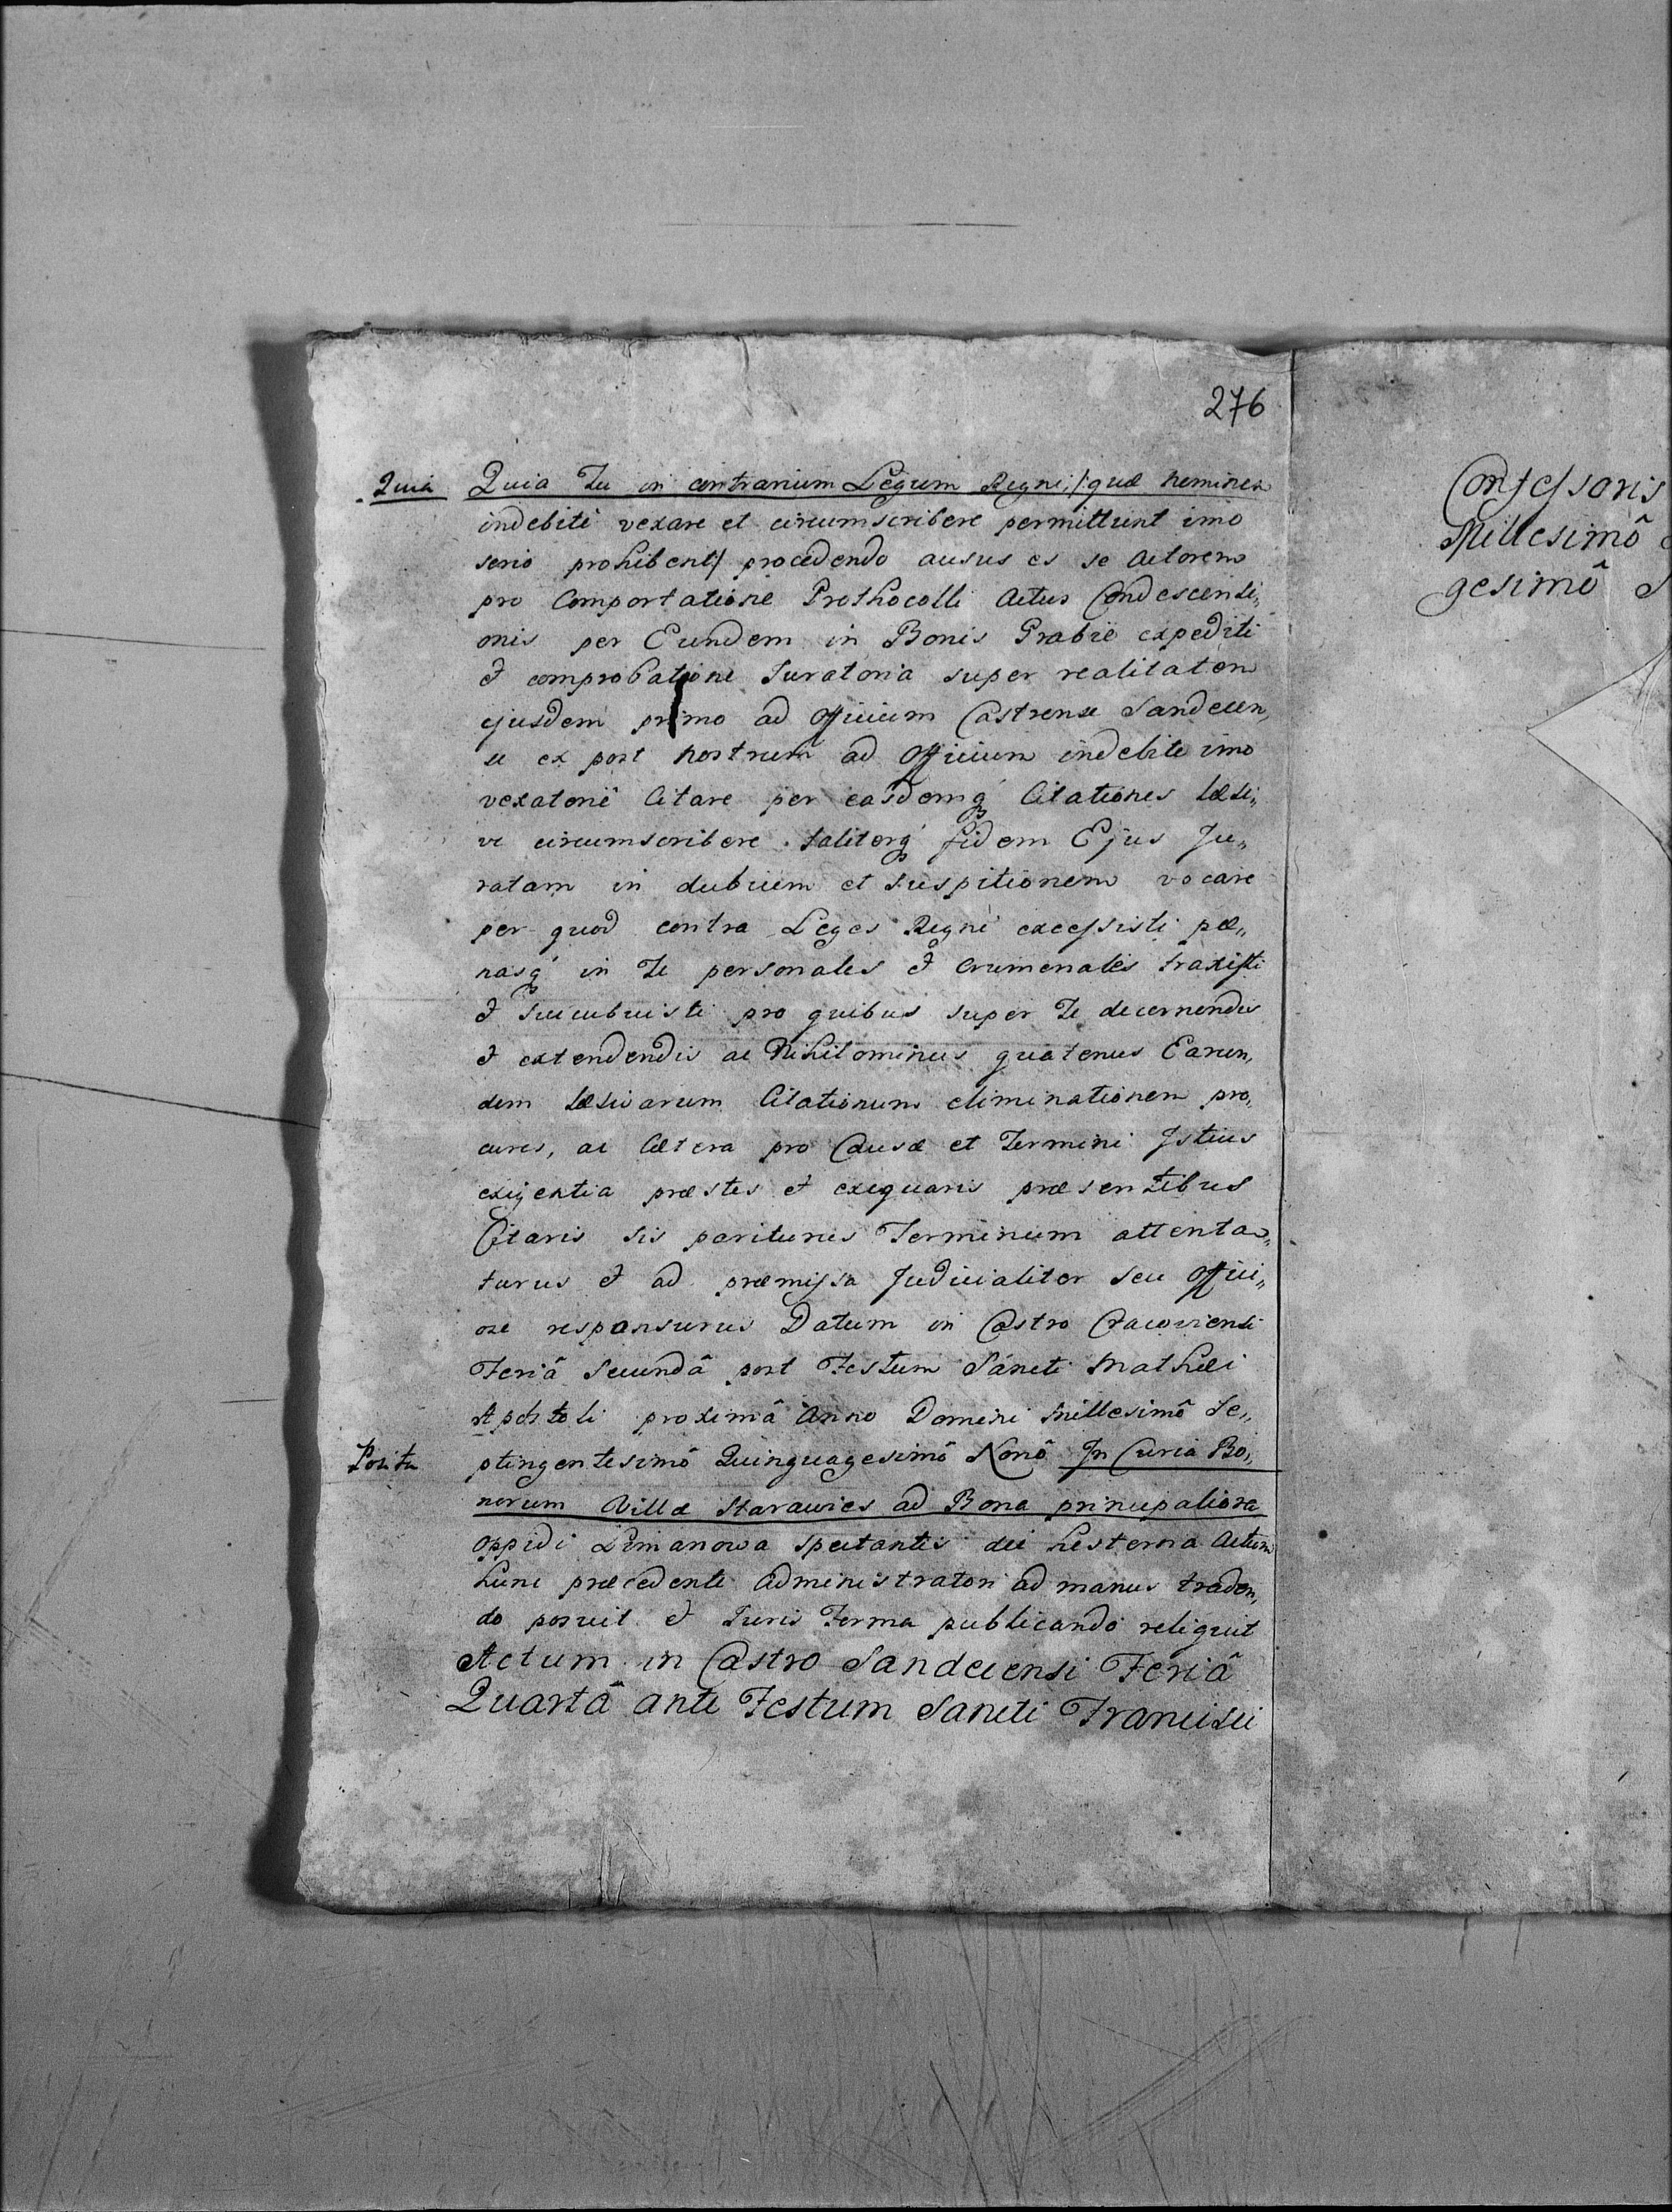 276
Quia Quia Tu in contrarium Legum Regni /: quæ neminem
indebitè vexare et circumscribere permittunt imo
serio prohibent/ procedendo ausus es se Actorem
pro Comportatione Prothocolli Actus Condescensi„
onis per Eundem in Bonis Grabie expediti
& comprobatione Juratoria super realitatem
ejusdem primo ad Officium Castrense Sandecen„
se ex post nostrum ad Officium indebite imo
vexatoriè Citare per easdemq́ Citationes læsi„
ve circumscribere taliterq́ fidem Ejus Ju„
ratam in dubium et suspitionem vocare
per quod contra Leges Regni excessisti pæ„
nasq́ in Te personales & crumenales traxisti
& succubuisti pro quibus super Te decernendis
& extendendis ac Nihilominus quatenus Earun„
dem læsivarum Citationum eliminationem pro„
cures, ac Cætera pro Causæ et Termini Istius
exigentia præstes & exequaris præsentibus
Citaris sis pariturus Terminum attenta„
turus & ad præmissa Judicialiter seu Offici„
ose responsurus Datum in Castro Cracoviensi
Feriâ Secundâ post Festum Sancti Mathæi
Apostoli proximâ Anno Domini Millesimô Se„
Posita ptingentesimô Quinquagesimô Nonô In Curia Bo„
norum Villæ Starawies ad Bona principaliora
Oppidi Limanowa spectantis die hesterna Actum
hunc præcedente Administratori ad manus traden„
do posuit & Juris Forma publicando reliquit
Actum in Castro Sandecensi Feriâ
Quartâ ante Festum Sancti Francisci
Confessoris
Millesimô
gesimô